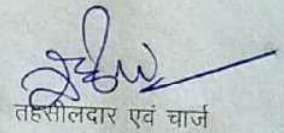 तहसीलदार एवं चार्ज